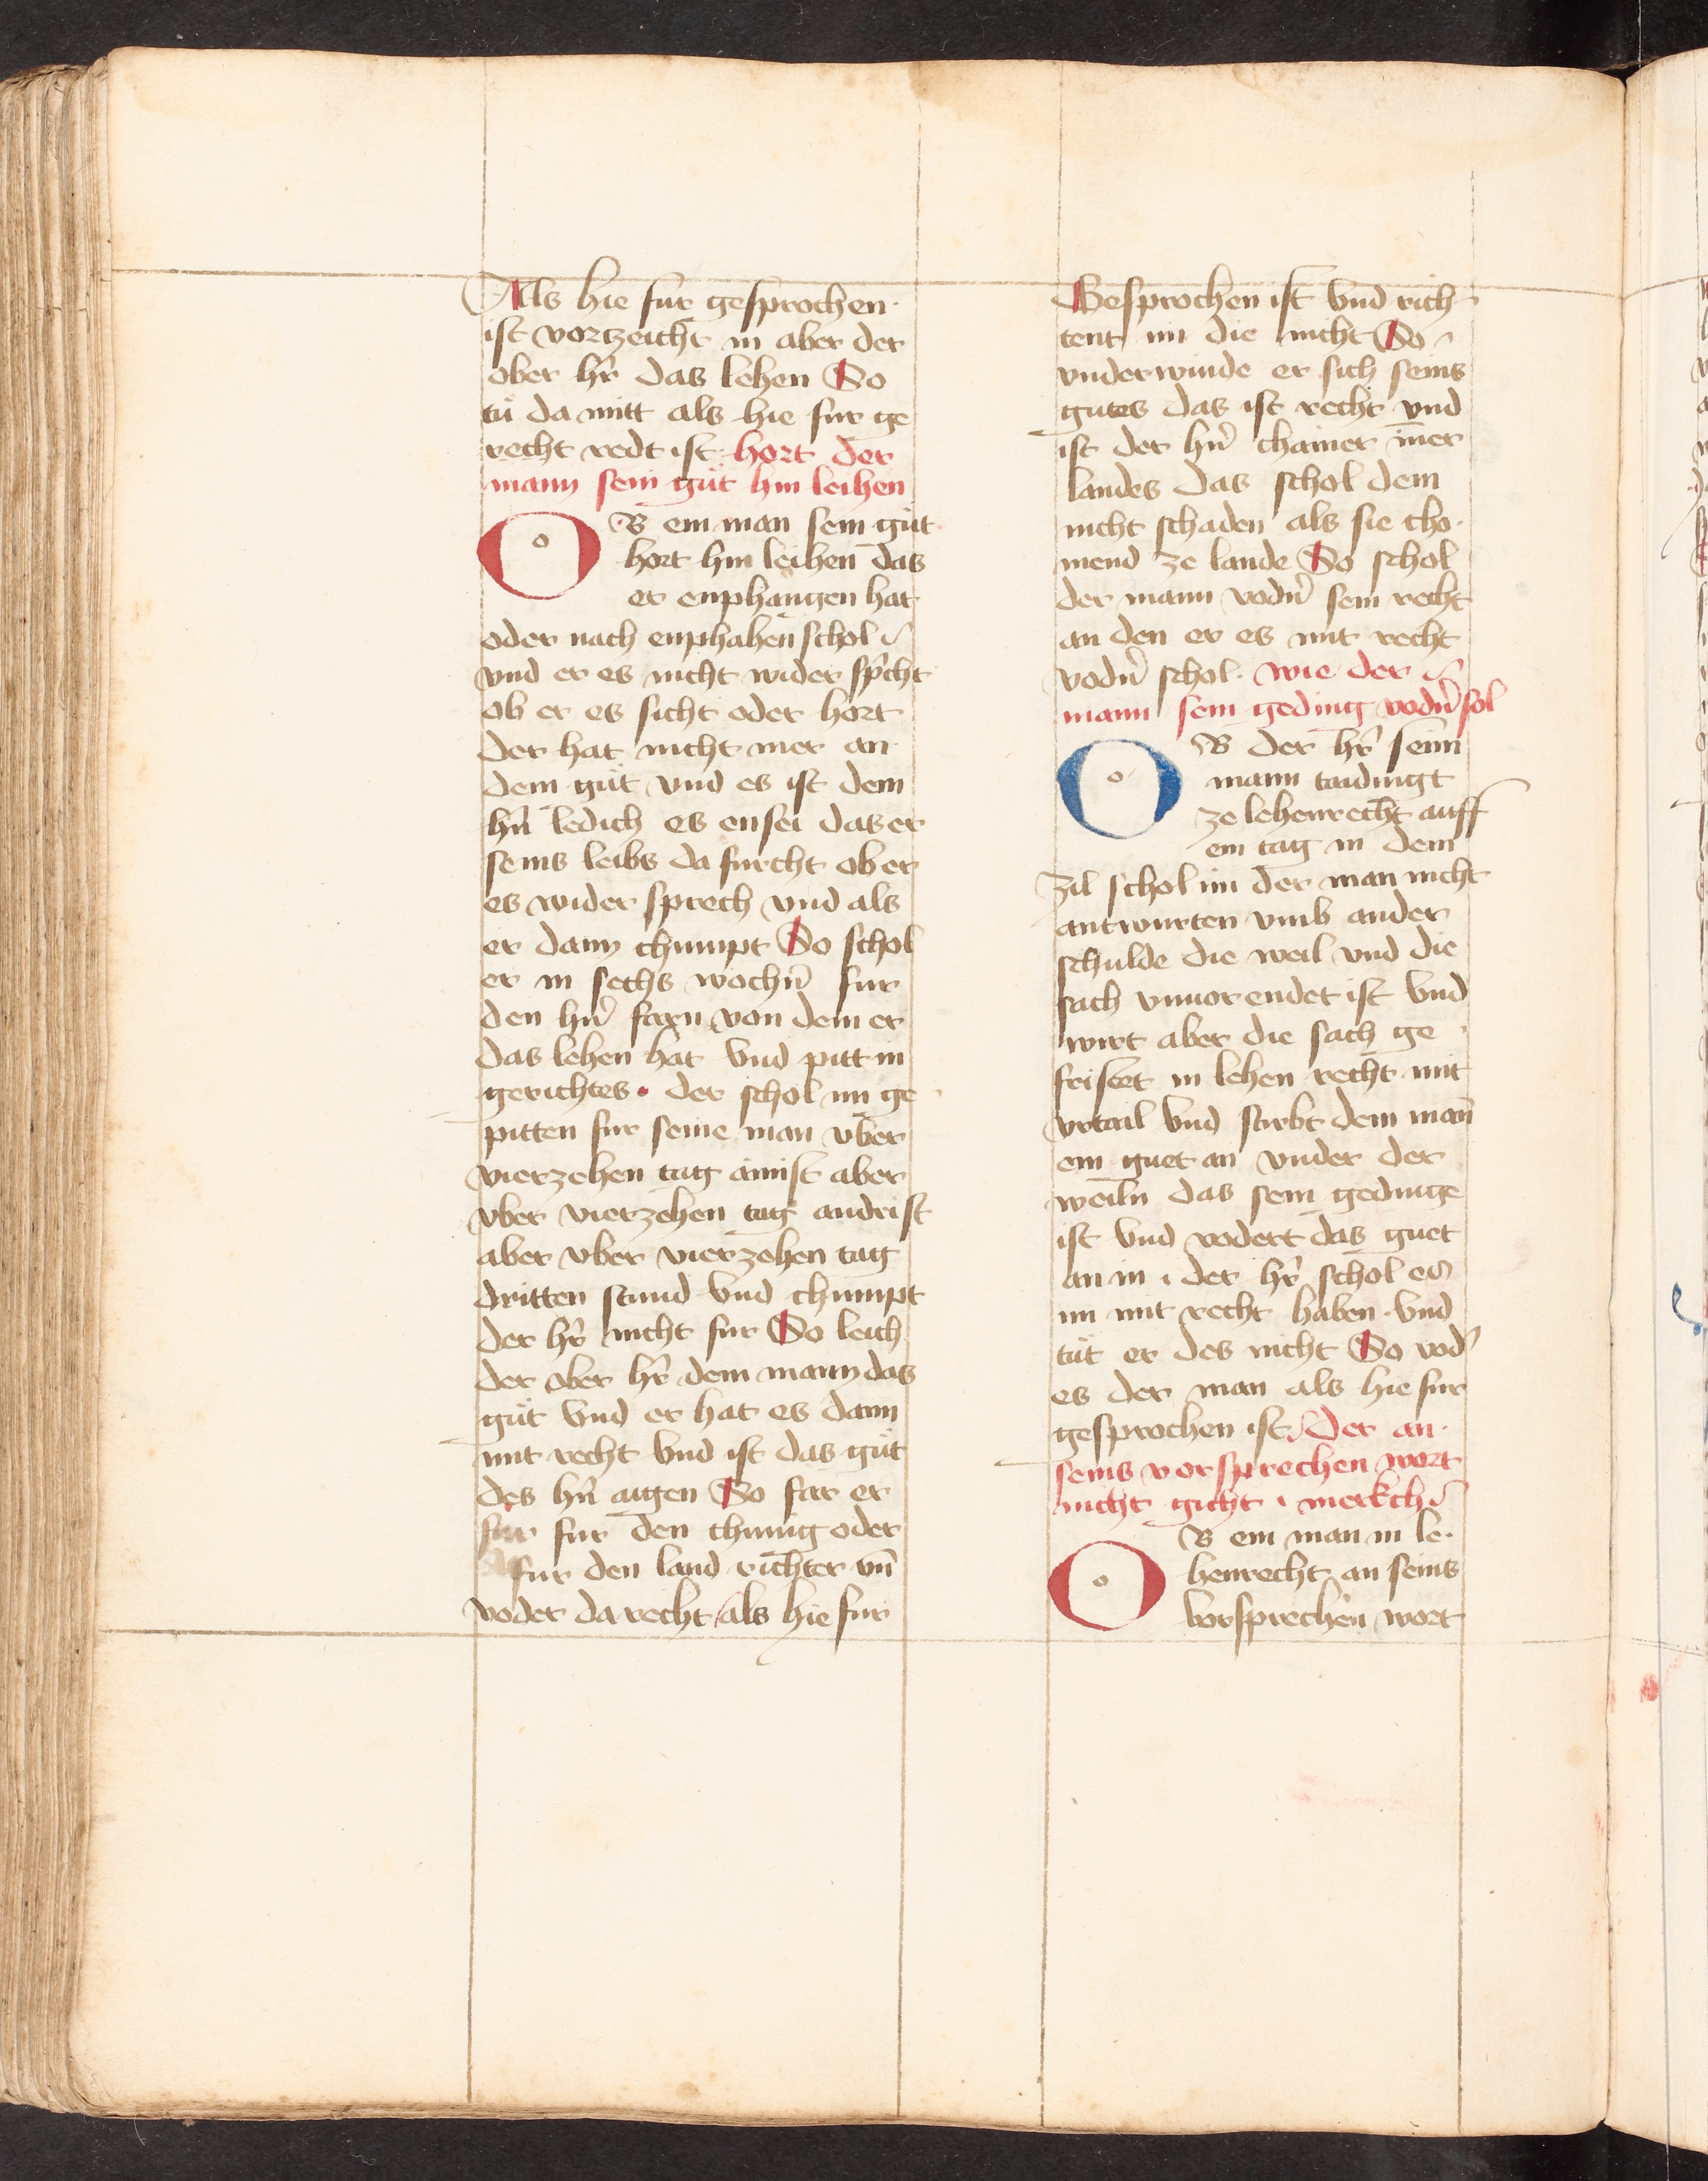 Als hie fur gesprochen
ist vortzeicht in aber der
ober hr̄ das lehen So
tů da mitt als hie fur ge
recht redt ist hort der
mann sein gůt hin leihen
OB ein man sein gůt
hort hin leihen das
er enphangen hat
oder nach enphahen schol
vnd er es nicht wider sp̄cht
ob er es sicht oder hort
der hat nicht mer an
dem gůt vnd es ist dem
hn̄ ledich es ensei das er
seins leibs da furcht ob er
es wider sprech vnd als
er dann chumpt So schol
er in sechs wochn̄ fur
den hn̄ farn von dem er
das lehen hat Vnd pitt in
gerichtes · der schol im ge
pitten fur seine man vber
vierzehen tag ainist aber
vber vierzehen tag andrist
aber vber vierzehen tag
dritten stund Vnd chumpt
der hr̄ nicht fur So leich
der ober hr̄ dem mann das
gůt Vnd er hat es dann
mit recht Vnd ist das gůt
des hn̄ aigen So far er
fur fur den chunig oder
fur den land richter vn̄
voder da recht als hie fur
Gesprochen ist Vnd rich
tent im die nicht So
vnderwinde er sich seins
gutes das ist recht vnd
ist der hn̄ chainer im̄er
landes das schol dem
nicht schaden als sie cho
mend ze lande So schol
der mann vodn̄ sein recht
an den er es mit recht
vodn̄ schol · wie der
mann sein geding vodn̄ sol
OB der hr̄ seim
mann taidingt
ze lehenrecht auff
ein tag in dem
zil schol im der man nicht
antwurten vmb ander
schulde die weil vnd die
sach vnuorendet ist Vnd
wirt aber die sach ge
fristet in lehen recht mit
vrtail Vnd stirbt dem man̄
ein guet an vnder der
weiln̄ das sein gedinge
ist Vnd vodert das guet
an in der hr̄ schol es
im mit recht haben · Vnd
tůt er des nicht So vod̄
es der man als hie fur
gesprochen ist Der an
seins vorsprechen wort
nicht gicht merkch
OB ein man in le
henrecht an seins
vorsprechen wort